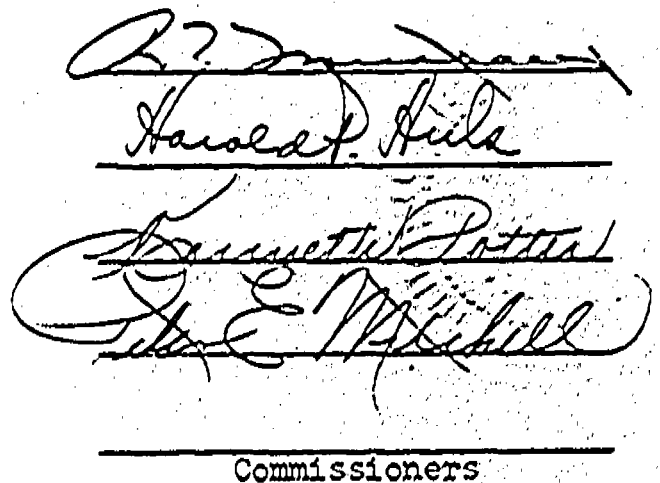 Harold P. Huls
Kenneth Potter
Peter E. Mitchell
Commissioners